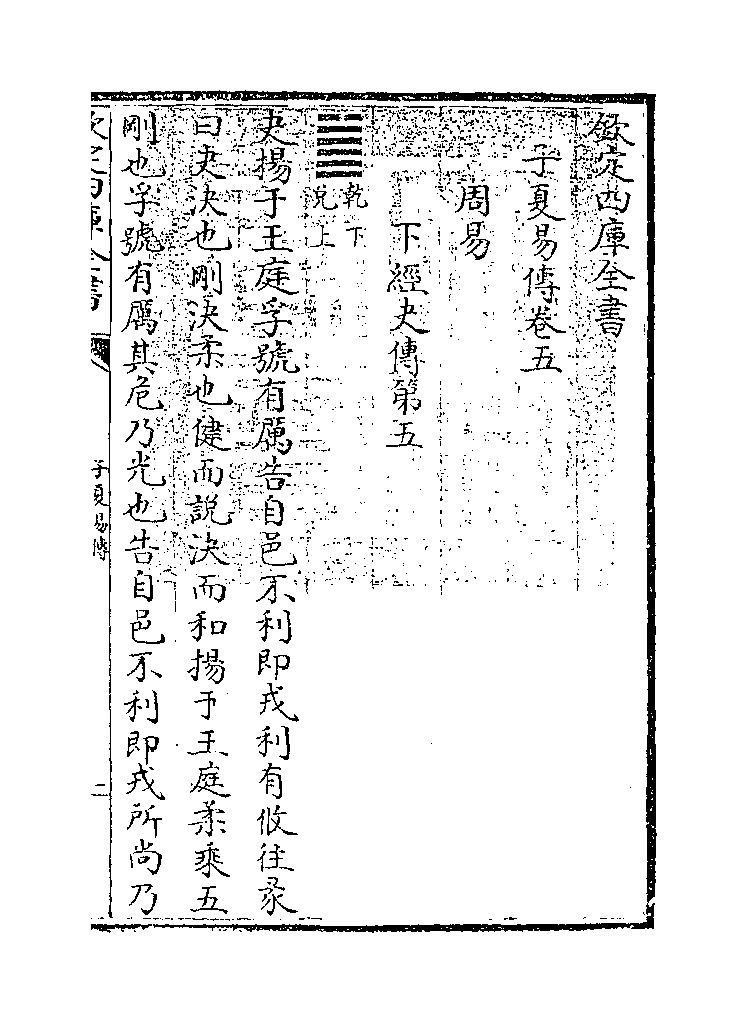 欽定四庫全書
子夏易傳卷五
周易
下經夬傳第五
䷪乾下
兌上
夬揚于王庭孚號有厲告自邑不利即戎利有攸往彖
曰夬決也剛決柔也健而說決而和揚于王庭柔乘五
剛也孚號有厲其危乃光也告自邑不利即戎所尚乃
欽定四庫全書
子夏易傳